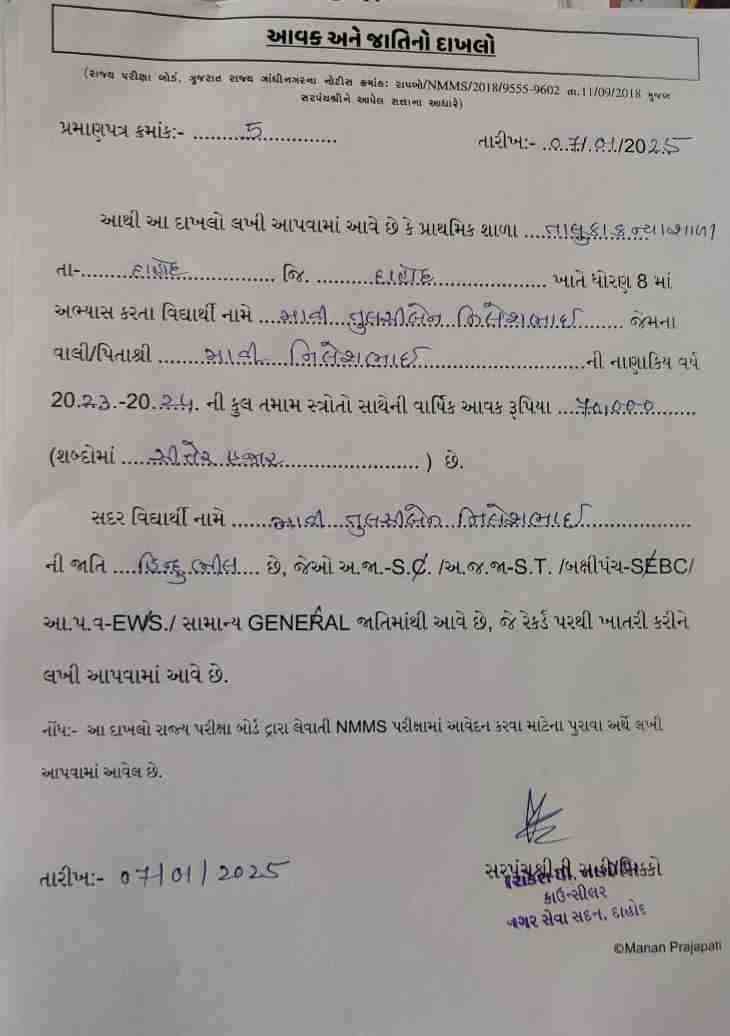 આવક અને જાતિનો દાખલો
(રાજ્ય પરીક્ષા બોર્ડ, ગુજરાત રાજ્ય ગાંધીનગરના નોટીસ ક્રમાંક: રાપબો/NMMS/2018/9555-9602 તા.11/09/2018 મુજબ
સરપંચશ્રીને આપેલ સત્તાના આધારે)
પ્રમાણપત્ર ક્રમાંક:- ..........5..............
તારીખ:- ..07/.01./2025
આથી આ દાખલો લખી આપવામાં આવે છે કે પ્રાથમિક શાળા ...તાલુકા કન્યાશાળા
તા-.......દાહોદ.............. જિ. ........દાહોદ................ ખાતે ધોરણ 8 માં
અભ્યાસ કરતા વિદ્યાર્થી નામે ...ભાભી તુલસીબેન નિલેશભાઈ...... જેમના
વાલી/પિતાશ્રી .......ભાભી નિલેશભાઈ........................ની નાણાકિય વર્ષ
20.23.-20.24. ની કુલ તમામ સ્ત્રોતો સાથેની વાર્ષિક આવક રૂપિયા ...70,000......
(શબ્દોમાં ....સીત્તેર હજાર..................... ) છે.
સદર વિદ્યાર્થી નામે .......ભાભી તુલસીબેન નિલેશભાઈ...............
ની જાતિ ....હિન્દુ ભીલ.... છે, જેઓ અ.જા.-S.C. /અ.જ.જા-S.T. /બક્ષીપંચ-SEBC/
આ.પ.વ-EWS./ સામાન્ય GENERAL જાતિમાંથી આવે છે, જે રેકર્ડ પરથી ખાતરી કરીને
લખી આપવામાં આવે છે.
નોંધ:- આ દાખલો રાજ્ય પરીક્ષા બોર્ડ દ્રારા લેવાતી NMMS પરીક્ષામાં આવેદન કરવા માટેના પુરાવા અર્થે લખી
આપવામાં આવેલ છે.
તારીખ:- 07/01/2025
સરપંચશ્રીની સહી/સિક્કો
કાઉન્સીલર
નગર સેવા સદન, દાહોદ
©Manan Prajapati